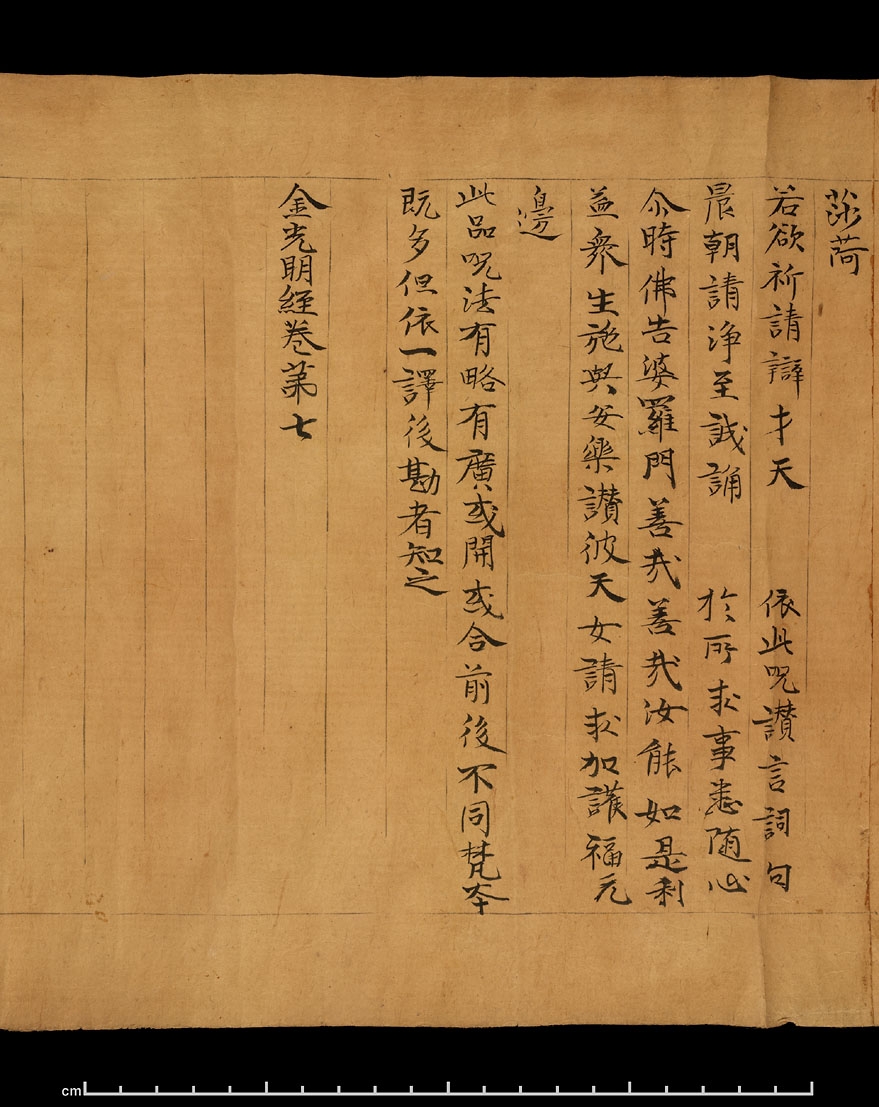 莎訶
若欲祈請辯才天　依此呪讃言詞句
晨朝請淨至誠誦　於所求事悉随心
尒時佛告婆羅門善哉善哉汝能如是利
益衆生施與安樂讃彼天女請求加護福无
邊
此品呪法有略有廣或開或合前後不同梵夲
既多但依一譯後勘者知之
金光明經卷苐七
cm